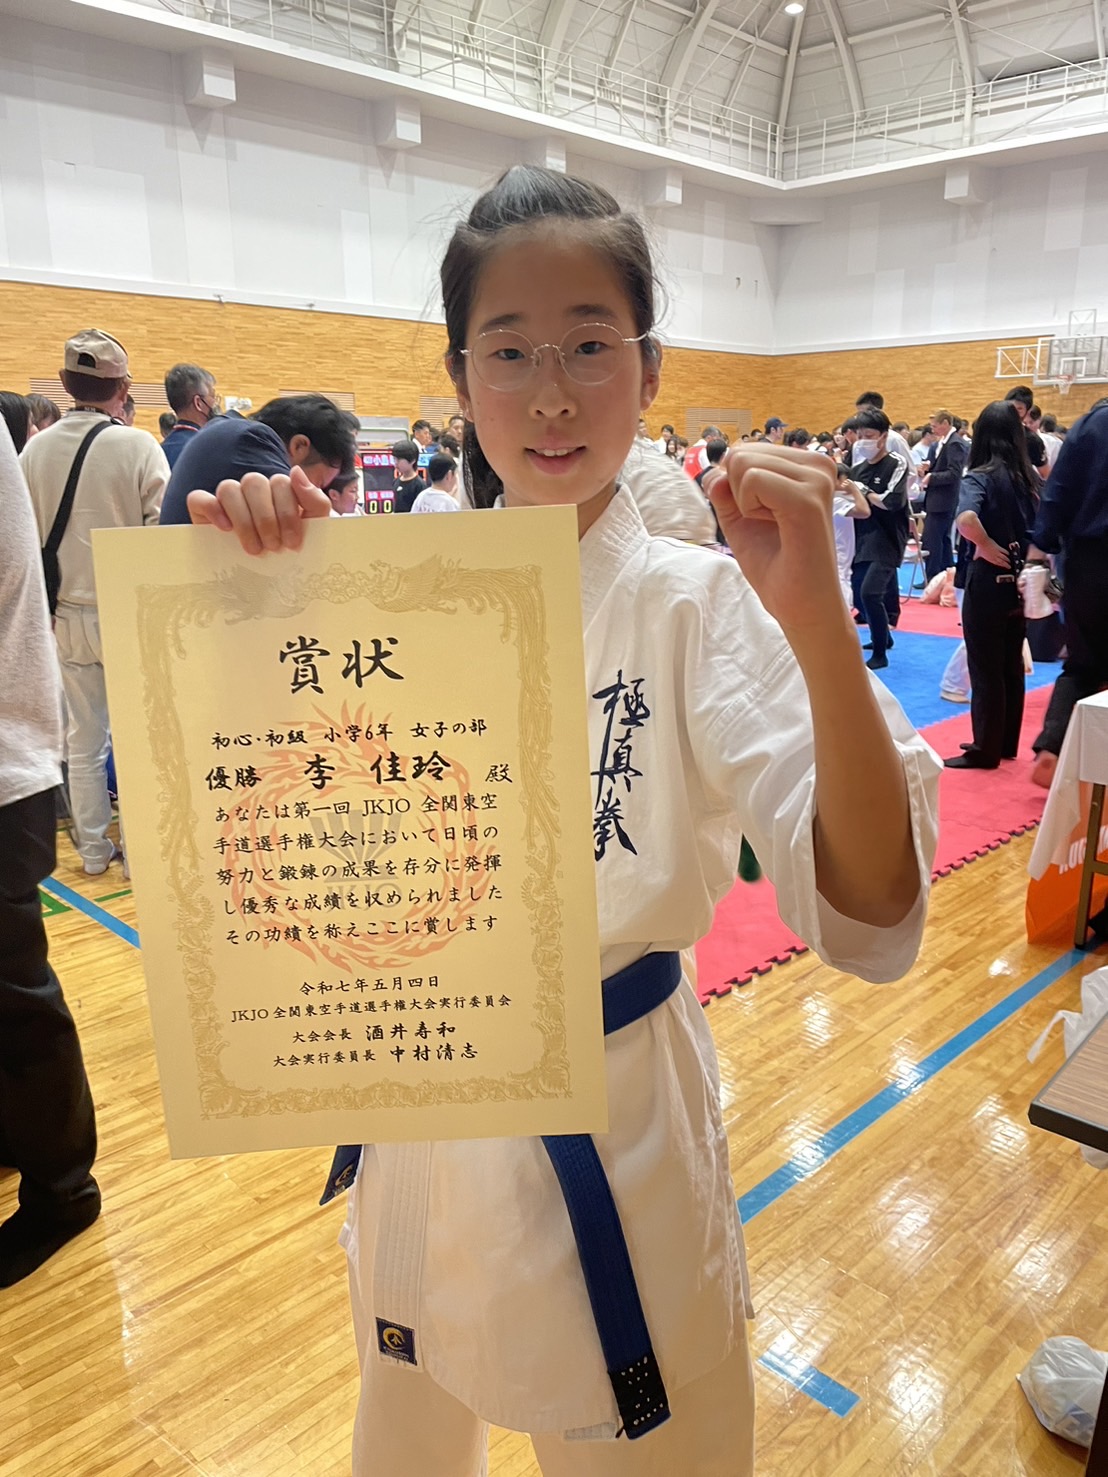 賞状
初心・初級 小学6年 女子の部
優勝 李 佳玲 殿
あなたは第一回 JKJO 全関東空
手道選手権大会において日頃の
努力と鍛錬の成果を存分に発揮
し優秀な成績を収められました
その功績を称えここに賞します
令和七年五月四日
JKJO 全関東空手道選手権大会実行委員会
大会会長 酒井寿和
大会実行委員長 中村清志
JKJO
極真拳
0 0